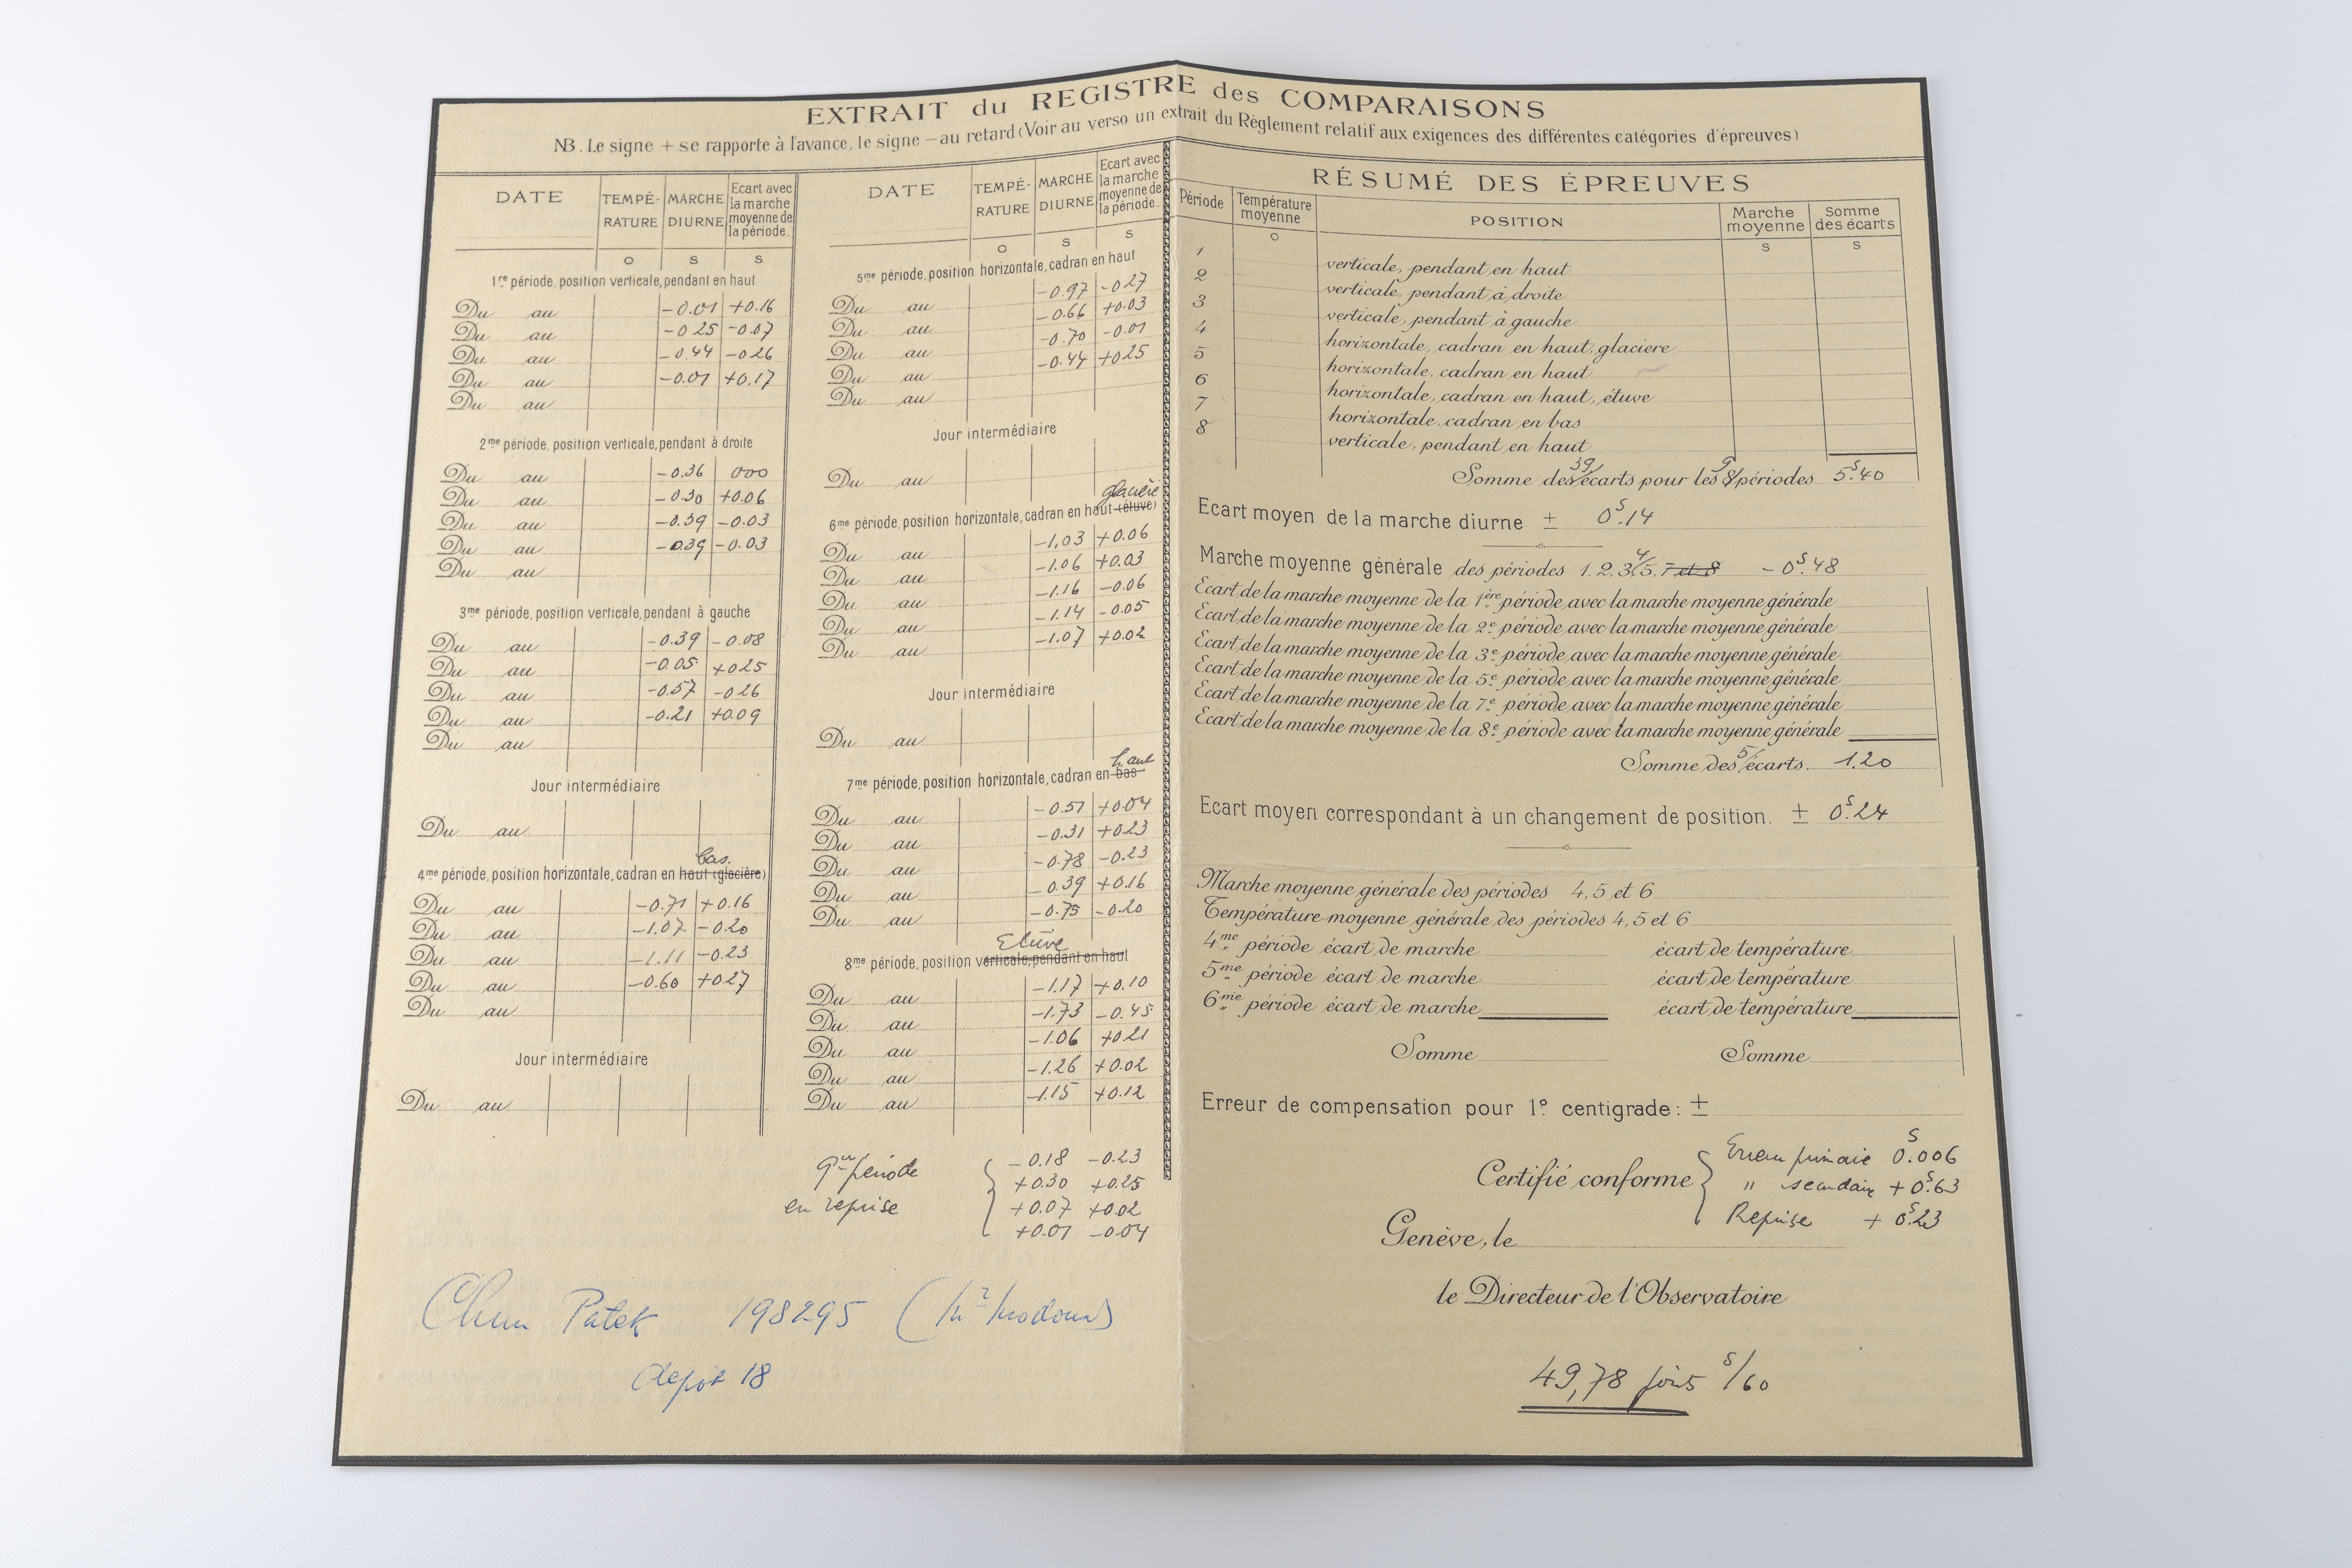 EXTRAIT du REGISTRE des COMPARAISONS
NB. Le signe + se rapporte à l'avance, le signe — au retard (Voir au verso un extrait du Règlement relatif aux exigences des différentes catégories d'épreuves)
DATE TEMPÉ-RATURE MARCHE DIURNE Ecart avec la marche moyenne de la période.
o s s
1re période, position verticale, pendant en haut
Du au -0.01 +0.16
Du au -0.25 -0.07
Du au -0.44 -0.26
Du au -0.01 +0.17
Du au
2me période, position verticale, pendant à droite
Du au -0.36 000
Du au -0.30 +0.06
Du au -0.39 -0.03
Du au -0.39 -0.03
Du au
3me période, position verticale, pendant à gauche
Du au -0.39 -0.08
Du au -0.05 +025
Du au -0.57 -026
Du au -0.21 +0.09
Du au
Jour intermédiaire
Du au
bas.
4me période, position horizontale, cadran en haut (glacière)
Du au -0.71 +0.16
Du au -1.07 -0.20
Du au -1.11 -0.23
Du au -0.60 +0.27
Du au
Jour intermédiaire
Du au
DATE TEMPÉ-RATURE MARCHE DIURNE Ecart avec la marche moyenne de la période.
o s s
5me période, position horizontale, cadran en haut
Du au -0.97 -027
Du au -0.66 +0.03
Du au -0.70 -0.01
Du au -0.44 +025
Du au
Jour intermédiaire
Du au
glacière
6me période, position horizontale, cadran en haut (étuve)
Du au -1.03 +0.06
Du au -1.06 +0.03
Du au -1.16 -0.06
Du au -1.14 -0.05
Du au -1.07 +0.02
Jour intermédiaire
Du au
haut
7me période, position horizontale, cadran en bas
Du au -0.51 +0.04
Du au -0.31 +0.23
Du au -0.78 -0.23
Du au -0.39 +0.16
Du au -0.75 -0.20
Etuve
8me période, position verticale, pendant en haut
Du au -1.17 +0.10
Du au -1.73 -0.45
Du au -1.06 +021
Du au -1.26 +0.02
Du au -1.15 +0.12
9me période en reprise
-0.18 -0.23
+0.30 +0.25
+0.07 +0.02
+0.01 -0.04
Patek 198295
depot 18
RÉSUMÉ DES ÉPREUVES
Période Température moyenne POSITION Marche moyenne Somme des écarts
o s s
1 verticale, pendant en haut
2 verticale, pendant à droite
3 verticale, pendant à gauche
4 horizontale, cadran en haut, glacière
5 horizontale, cadran en haut
6 horizontale, cadran en haut, étuve
7 horizontale, cadran en bas
8 verticale, pendant en haut
39 9
Somme des écarts pour les 8 périodes 5s.40
Ecart moyen de la marche diurne ± 0s.14
4
Marche moyenne générale des périodes 1. 2, 3, 5, 7 et 8 -0s.48
Ecart de la marche moyenne de la 1ère période avec la marche moyenne générale
Ecart de la marche moyenne de la 2e période avec la marche moyenne générale
Ecart de la marche moyenne de la 3e période avec la marche moyenne générale
Ecart de la marche moyenne de la 5e période avec la marche moyenne générale
Ecart de la marche moyenne de la 7e période avec la marche moyenne générale
Ecart de la marche moyenne de la 8e période avec la marche moyenne générale
5
Somme des écarts. 1.20
Ecart moyen correspondant à un changement de position. ± 0s.24
Marche moyenne générale des périodes 4, 5 et 6
Température moyenne générale des périodes 4, 5 et 6
4me période écart de marche écart de température
5me période écart de marche écart de température
6me période écart de marche écart de température
Somme Somme
Erreur de compensation pour 1º centigrade: ±
Certifié conforme
Erreur primaire 0s.006
" secondaire +0s.63
Reprise +0s.23
Genève, le
le Directeur de l'Observatoire
49,78 s/60